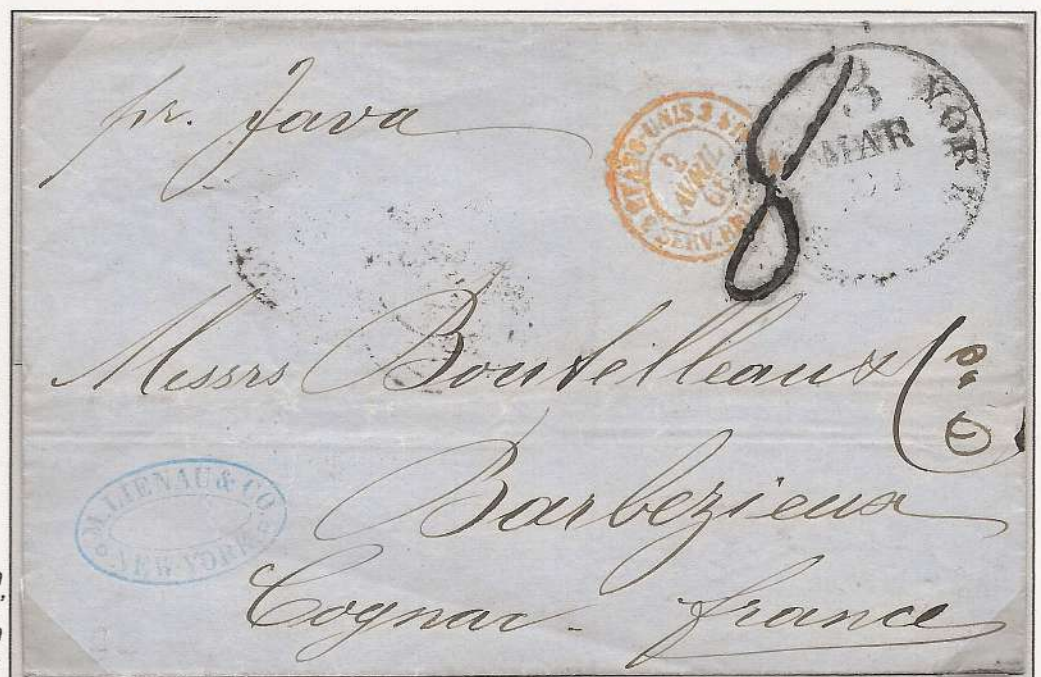 pr. Java
ETATS-UNIS 3 SERV. BR
2
AVRIL
3
MAR
YORK
8
Messrs Boutelleau & Co
Barbezieux
Cognac - france
M. LIENAU & CO
NEW-YORK